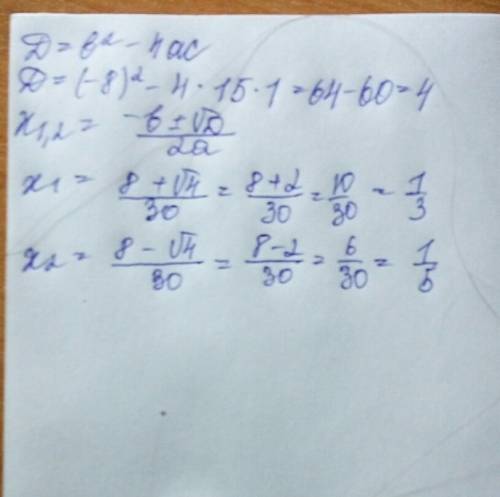 D = b² - 4ac
D = (-8)² - 4 · 15 · 1 = 64 - 60 = 4
x₁,₂ = (-b ± √D)/(2a)
x₁ = (8 + √4)/30 = (8 + 2)/30 = 10/30 = 1/3
x₂ = (8 - √4)/30 = (8 - 2)/30 = 6/30 = 1/5